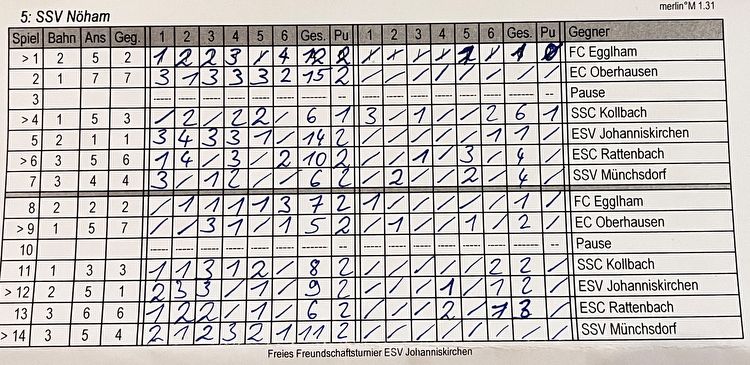 merlin°M 1.31
5: SSV Nöham
Spiel Bahn Ans Geg. 1 2 3 4 5 6 Ges. Pu 1 2 3 4 5 6 Ges. Pu Gegner
> 1 2 5 2 1 2 2 3 x 4 12 2 x x x x 1 x 1 0 FC Egglham
2 1 7 7 3 1 3 3 3 2 15 2 / / / / / / / / EC Oberhausen
3 ----- ----- ----- ----- ----- ----- ----- -- ----- ----- ----- ----- ----- ----- ----- -- Pause
> 4 1 5 3 / 2 / 2 2 / 6 1 3 / 1 / / 2 6 1 SSC Kollbach
5 2 1 1 3 4 3 3 1 / 14 2 / / / / / 1 1 / ESV Johanniskirchen
> 6 3 5 6 1 4 / 3 / 2 10 2 / / 1 / 3 / 4 / ESC Rattenbach
7 3 4 4 3 / 1 2 / / 6 2 / 2 / / 2 / 4 / SSV Münchsdorf
8 2 2 2 / 1 1 1 1 3 7 2 1 / / / / / 1 / FC Egglham
> 9 1 5 7 / / 3 1 / 1 5 2 / 1 / / 1 / 2 / EC Oberhausen
10 ----- ----- ----- ----- ----- ----- ----- -- ----- ----- ----- ----- ----- ----- ----- -- Pause
11 1 3 3 1 1 3 1 2 / 8 2 / / / / / 2 2 / SSC Kollbach
> 12 2 5 1 2 3 3 / 1 / 9 2 / / / 1 / 1 2 / ESV Johanniskirchen
13 3 6 6 1 2 2 / 1 / 6 2 / / / 2 / 1 3 / ESC Rattenbach
> 14 3 5 4 2 1 2 3 2 1 11 2 / / / / / / / / SSV Münchsdorf
Freies Freundschaftsturnier ESV Johanniskirchen